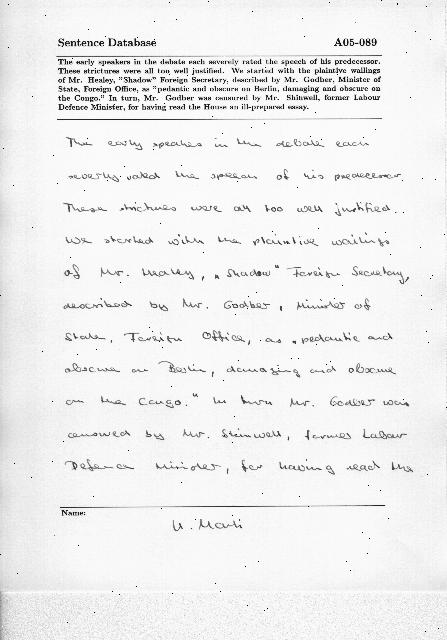 Sentence Database A05-089
The early speakers in the debate each severely rated the speech of his predecessor.
These strictures were all too well justified. We started with the plaintive wailings
of Mr. Healey, "Shadow" Foreign Secretary, described by Mr. Godber, Minister of
State, Foreign Office, as "pedantic and obscure on Berlin, damaging and obscure on
the Congo." In turn, Mr. Godber was censured by Mr. Shinwell, former Labour
Defence Minister, for having read the House an ill-prepared essay.
The early speakes in the debate each
severly rated the speech of his predecessor.
These strictures were all too well justified.
We started with the plaintive wailings
of Mr. Healey, „Shadow" Foreign Secretary,
described by Mr. Godber, Minister of
State, Foreign Office, as „pedantic and
obscure on Berlin, damaging and obscure
on the Congo." In turn Mr. Godber was
censured by Mr. Shinwell, former Labour
Defence Minister, for having read the
Name: